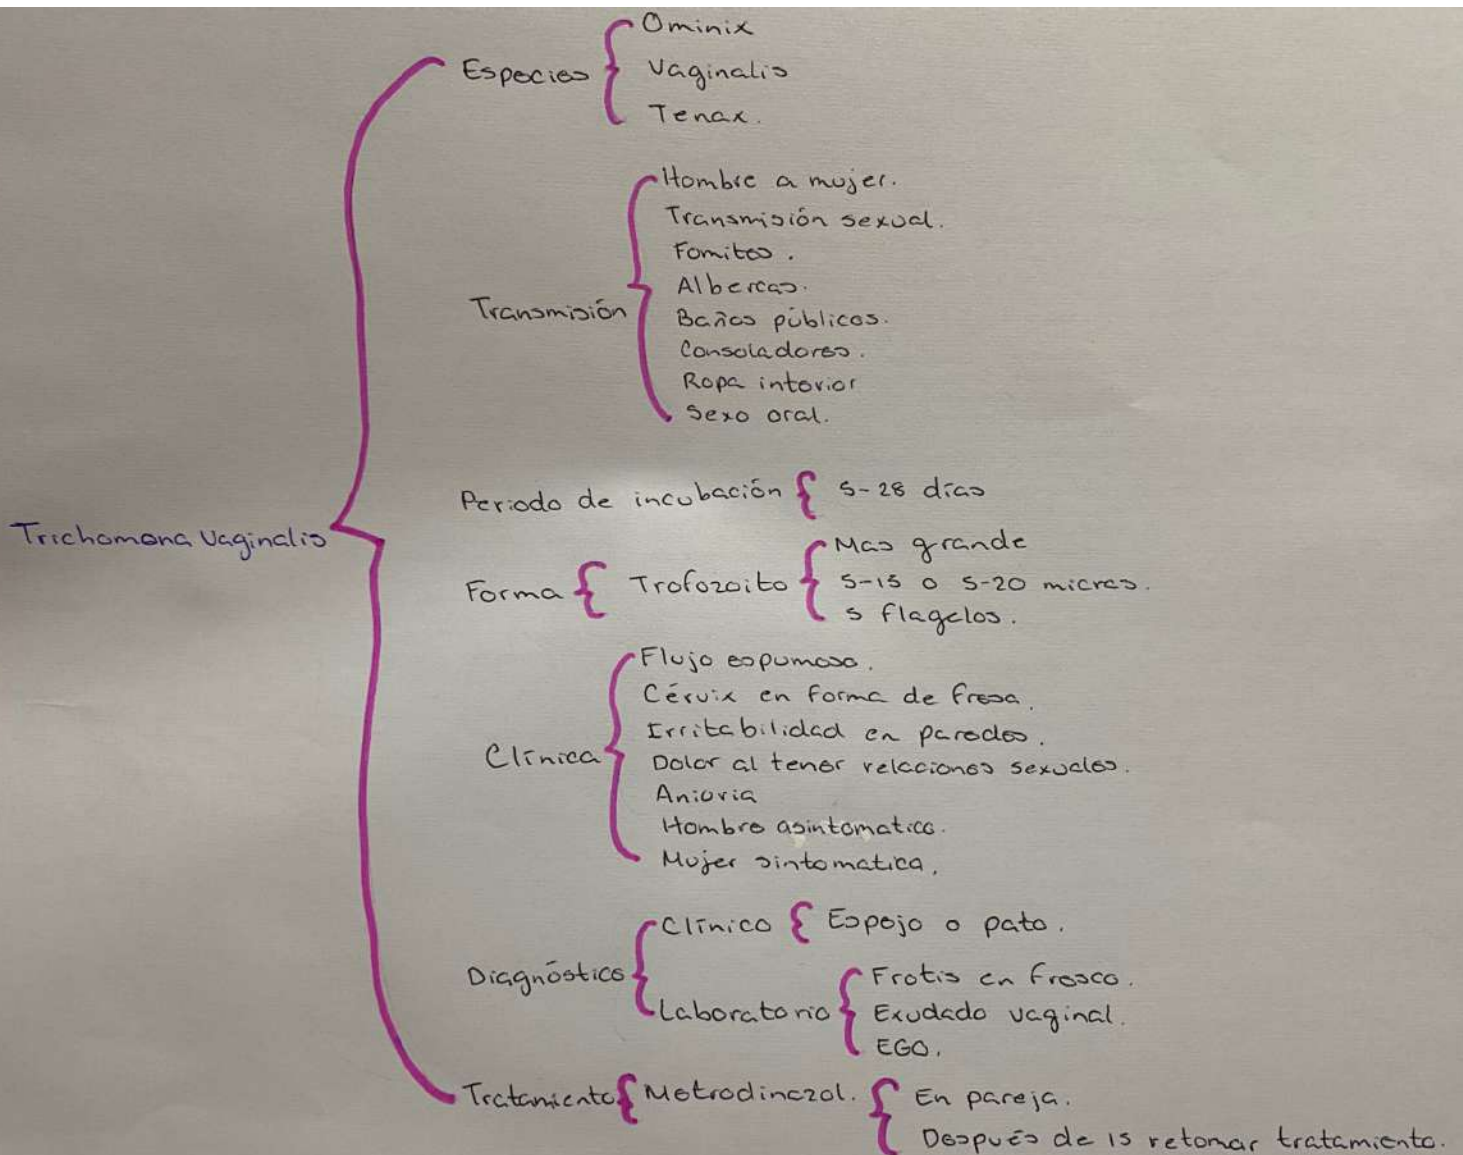 Trichomona Vaginalis
Especies
Ominix
Vaginalis
Tenax.
Transmisión
Hombre a mujer.
Transmisión sexual.
Fomites.
Albercas.
Baños públicos.
Consoladores.
Ropa interior
Sexo oral.
Periodo de incubación
5-28 días
Forma
Trofozoito
Mas grande
5-15 o 5-20 micras.
5 flagelos.
Clínica
Flujo espumoso.
Cérvix en forma de fresa.
Irritabilidad en paredes.
Dolor al tener relaciones sexuales.
Aniuria
Hombre asintomatico.
Mujer sintomatica.
Diagnóstico
Clínico
Espejo o pato.
Laboratorio
Frotis en fresco.
Exudado vaginal.
EGO.
Tratamiento
Metrodinazol.
En pareja.
Después de 15 retomar tratamiento.